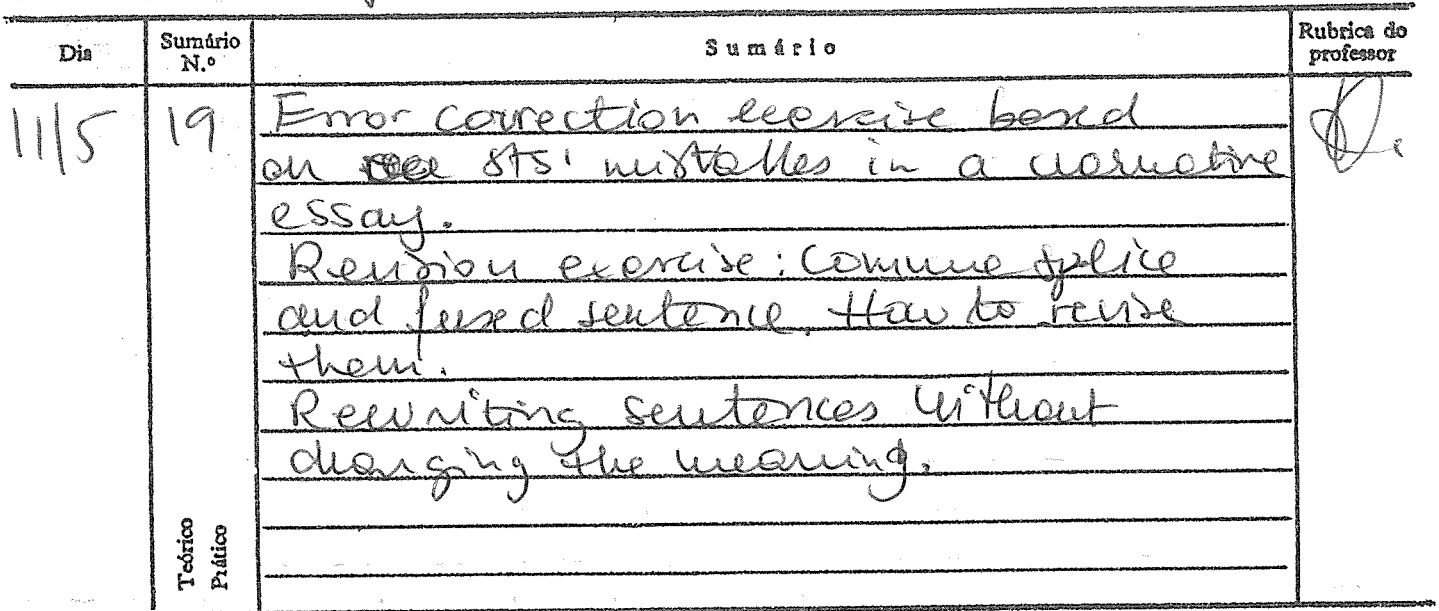 Dia
Sumário N.º
Sumário
Rubrica do professor
11/5
19
Error correction exercise based
on sts' mistakes in a narrative
essay.
Revision exercise: Comma splice
and fused sentence. How to revise
them.
Rewriting sentences without
changing the meaning.
Teórico
Prático